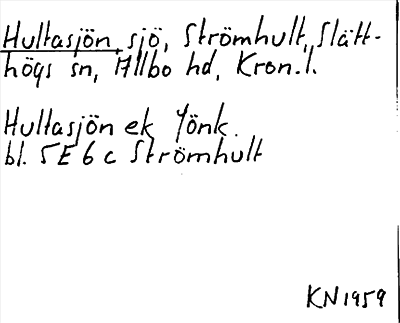 Hultasjön, sjö, Strömhult, Slätt-
högs sn, Allbo hd, Kron.l.
Hultasjön ek Jönk.
bl. 5E 6c Strömhult
KN 1959